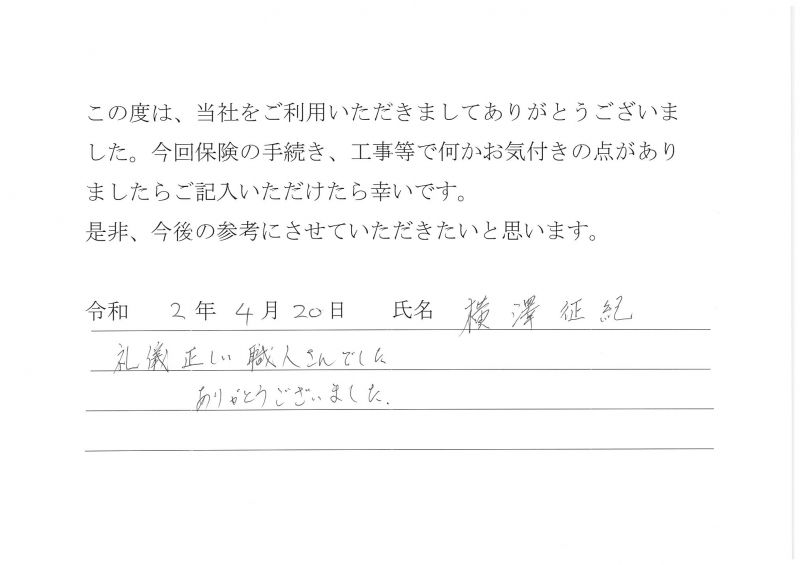 この度は、当社をご利用いただきましてありがとうございま
した。今回保険の手続き、工事等で何かお気付きの点があり
ましたらご記入いただけたら幸いです。
是非、今後の参考にさせていただきたいと思います。
令和 2年 4月 20日 氏名 横澤征紀
礼儀正しい職人さんでした
ありがとうございました.